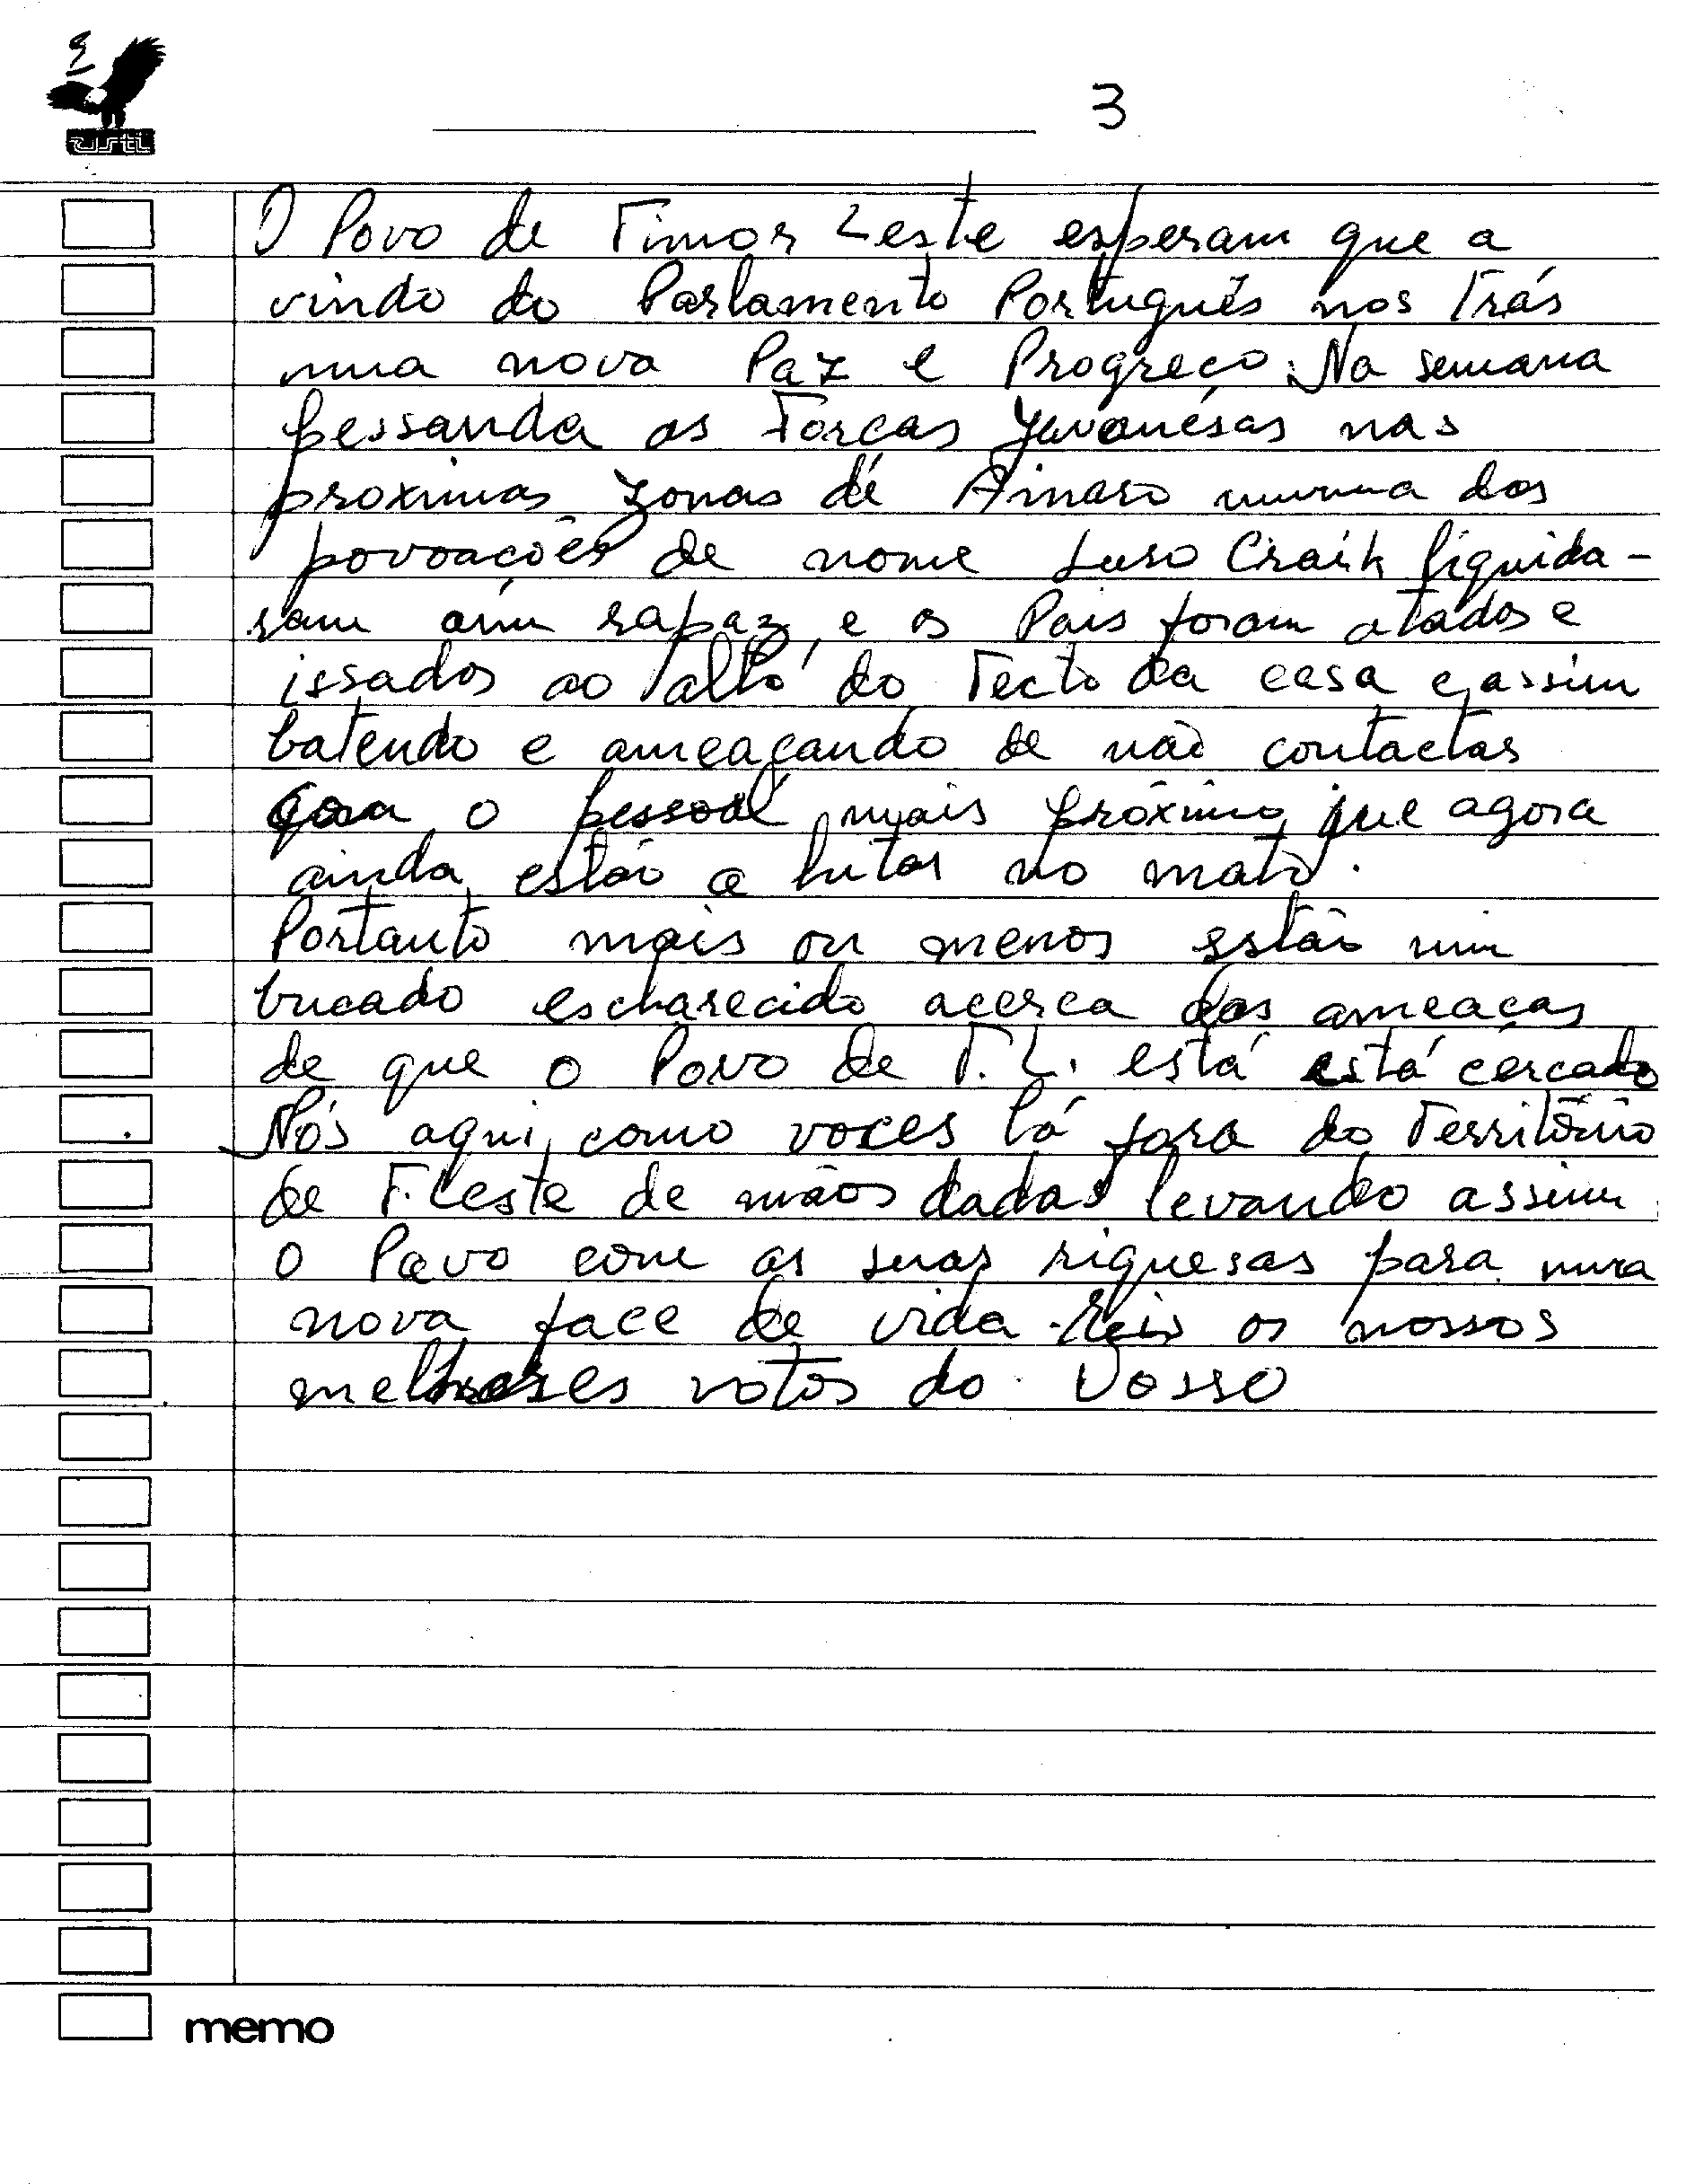 3
O Povo de Timor Leste esperam que a
vindo do Parlamento Português nos Trás
uma nova Paz e Progreço. Na semana
pessanda as Forcas Javanésas nas
proximas zonas de Ainaro numa das
povoações de nome Luso Craik liquida-
ram um rapaz, e os Pais foram atados e
issados ao alto do Tecto da casa e, assim
batendo e ameaçando de não contactar
o pessoal mais próximo que agora
ainda estão a lutar no mato.
Portanto mais ou menos estão um
bucado escharecido acerca das ameaças
de que o Povo de T.L. está está cercado
Nós aqui, como voces lá fora do Território
de T. Leste de mãos dadas levando assim
o Povo com as suas riquesas para uma
nova face de vida. Reis os nossos
melhores votos do Vosso
memo